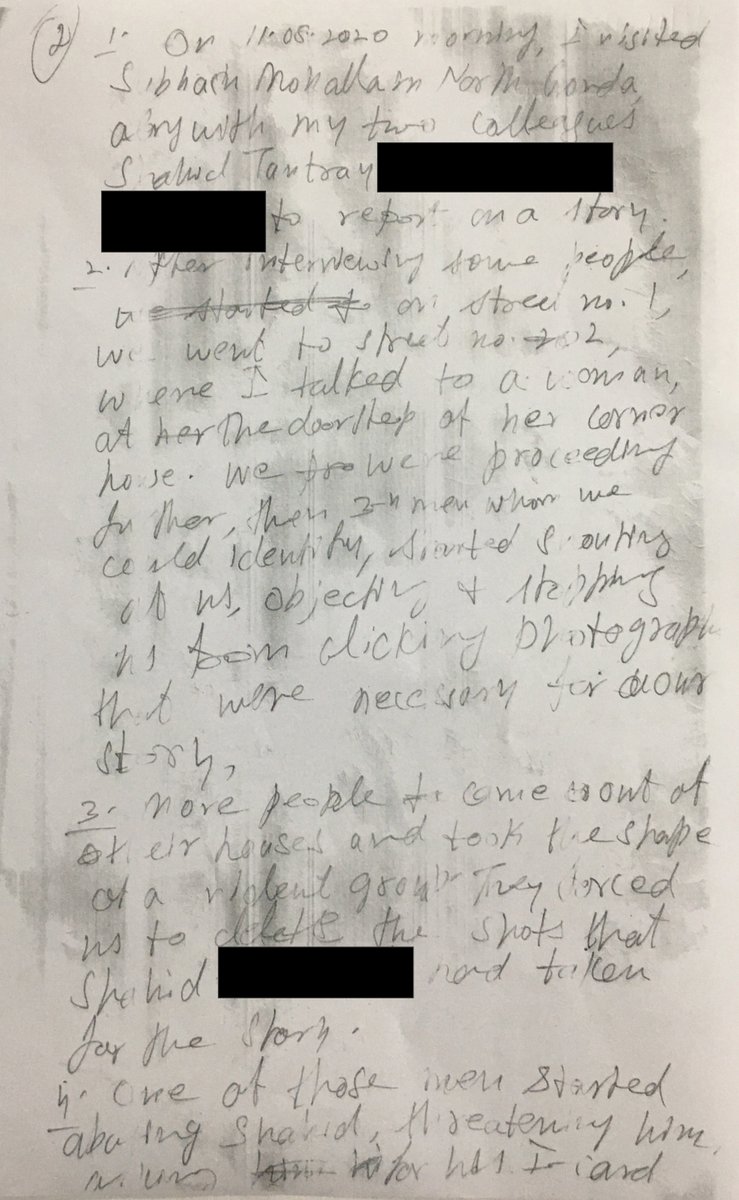 (2) 1. On 11.08.2020 morning, I visited
Subhash Mohallam North Gonda,
along with my two colleagues
Shahid Tantray
to report on a story.
2. After interviewing some people,
on street no. 1,
we went to street no. 2,
where I talked to a woman,
at her the doorstep of her corner
house. We were proceeding
further, then men whom we
could identify, started shouting
at us, objecting & stopping
us from clicking photographs
that were necessary for our
story,
3. More people to come out of
their houses and took the shape
of a violent group. They forced
us to delete the shots that
Shahid had taken
for the story.
4. One of those men started
abusing Shahid, threatening him,
asking for his I-card